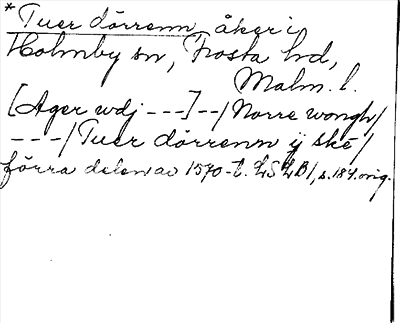 *Tuer dörrenn, åker i
Holmby sn, Frosta hd,
Malm. l.
[Ager wdj ---]--/Norre wongh/
---/Tuer dörrenn ij ske/
förra delen av 1570-t. LSLB1, s. 184. orig.